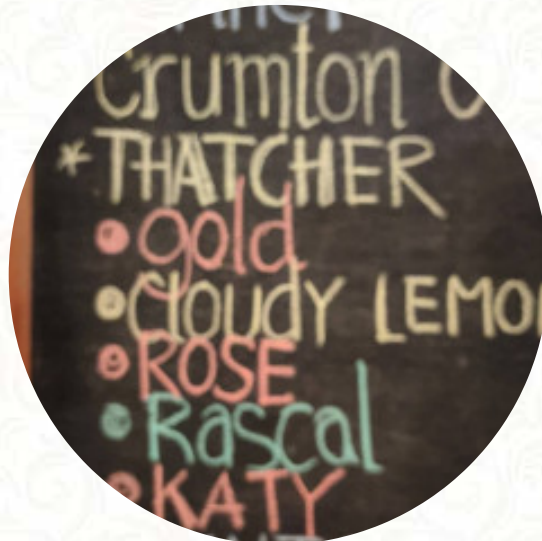 Crumton
* THATCHER
• gold
• Cloudy LEMO
• ROSE
• Rascal
• KATY